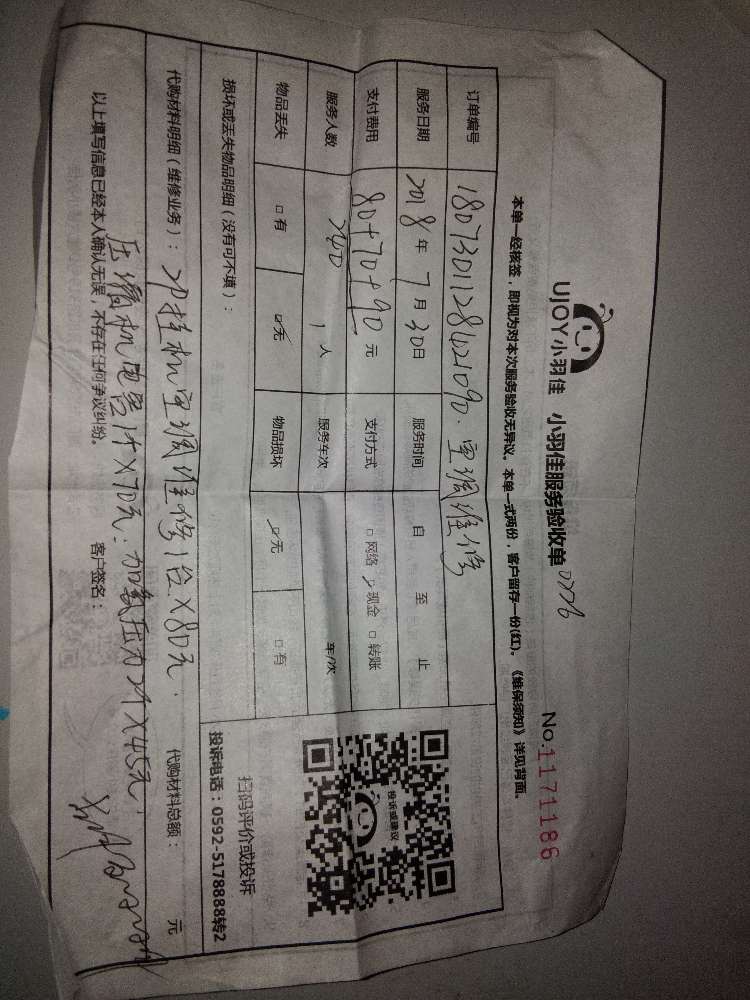 UJOY小羽佳 小羽佳服务验收单 No.1171186
本单一经核签，即视为对本次服务验收无异议。本单一式两份，客户留存一份(红)。《维保须知》详见背面。
订单编号 180730112842109O. 空调维修
服务日期 2018年7月30日 服务时间 自 至 止
支付费用 80+70+90元 支付方式 □网络 ☑现金 □转账
240
服务人数 1人 服务车次 车/次
物品丢失 □有 ☑无 物品损坏 ☑无 □有
损坏或丢失物品明细（没有可不填）：
投诉或建议
扫码评价或投诉
投诉电话：0592-5178888转2
代购材料明细（维修业务）： 挂机空调维修1台X80元. 代购材料总额： 元
压缩机电容1个X70元. 加氟压力2个X45元.
以上填写信息已经本人确认无误，不存在任何争议纠纷。 客户签名：